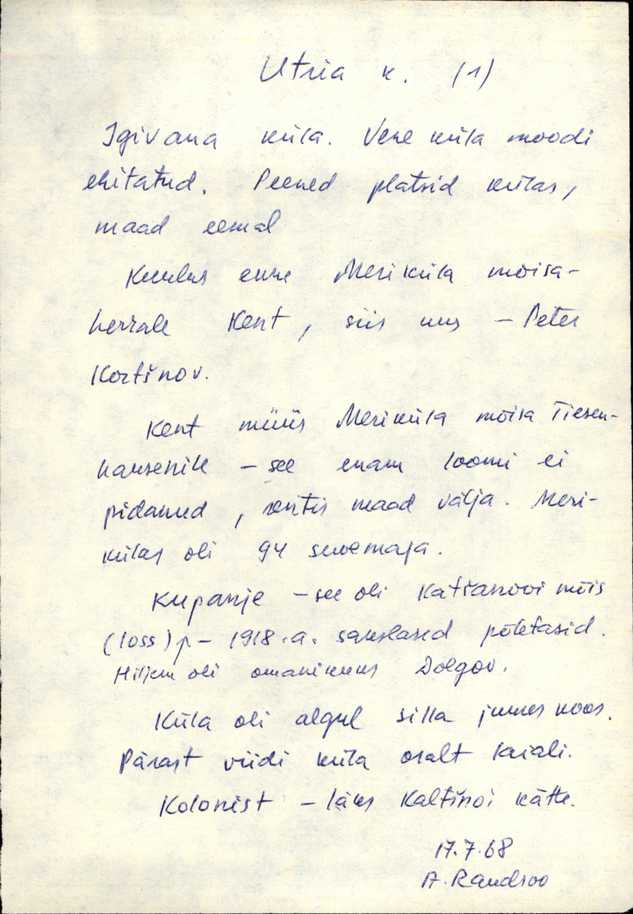 Utria k. (1)
Igivana küla. Vene küla moodi
ehitatud. Peened platsid külas,
maad eemal
Kuulus enne Meriküla mõisa-
herrale Kent, siis uus – Peter
Kortšnov.
Kent müüs Meriküla mõisa Tiesen-
hausenile – see enam loomi ei
pidanud, rentis maad välja. Meri-
külas oli 94 suvemaja.
Kupanje – see oli Katšanovi mõis
(loss) – 1918.a. sakslased põletasid.
Hiljem oli omanikuks Dolgov.
Küla oli algul silla juures koos.
Pärast viidi küla osalt laiali.
Kolonist – läks Kaltšnoi kätte.
17.7.68
A. Randsoo